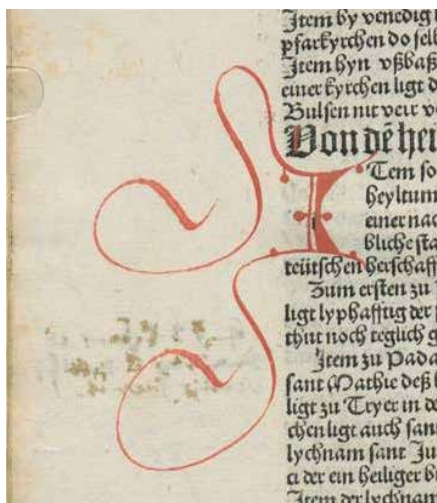 Item by venedig
pfarkyrchen do selb
Item hyn vßbaß
einer kyrchen ligt d
Bulsen nit veir v
Von dē hei
ITem so
heyltum
einer nac
bliche sta
teütschen herschafft
Zum ersten zu
ligt lyphafftig der
thut noch teglich g
Item zu Pada
sant Mathie deß
ligt zu Tryer in de
chen ligt auch san
lychnam sant Ju
ci der ein heiliger b
Item der lychnam